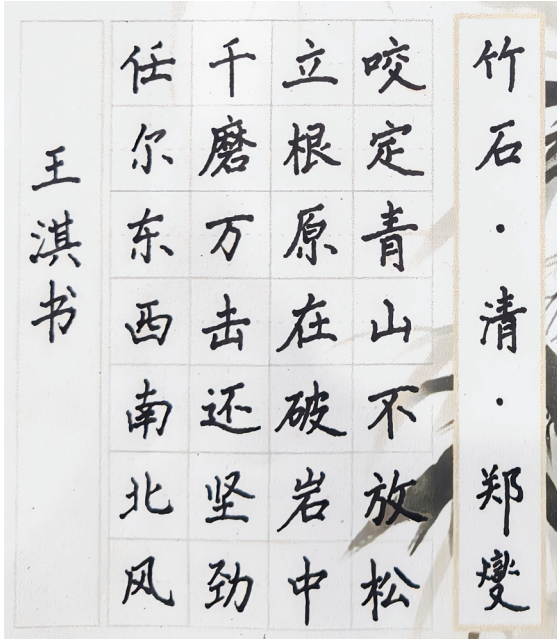 竹石·清·郑燮
咬定青山不放松
立根原在破岩中
千磨万击还坚劲
任尔东西南北风
王淇书